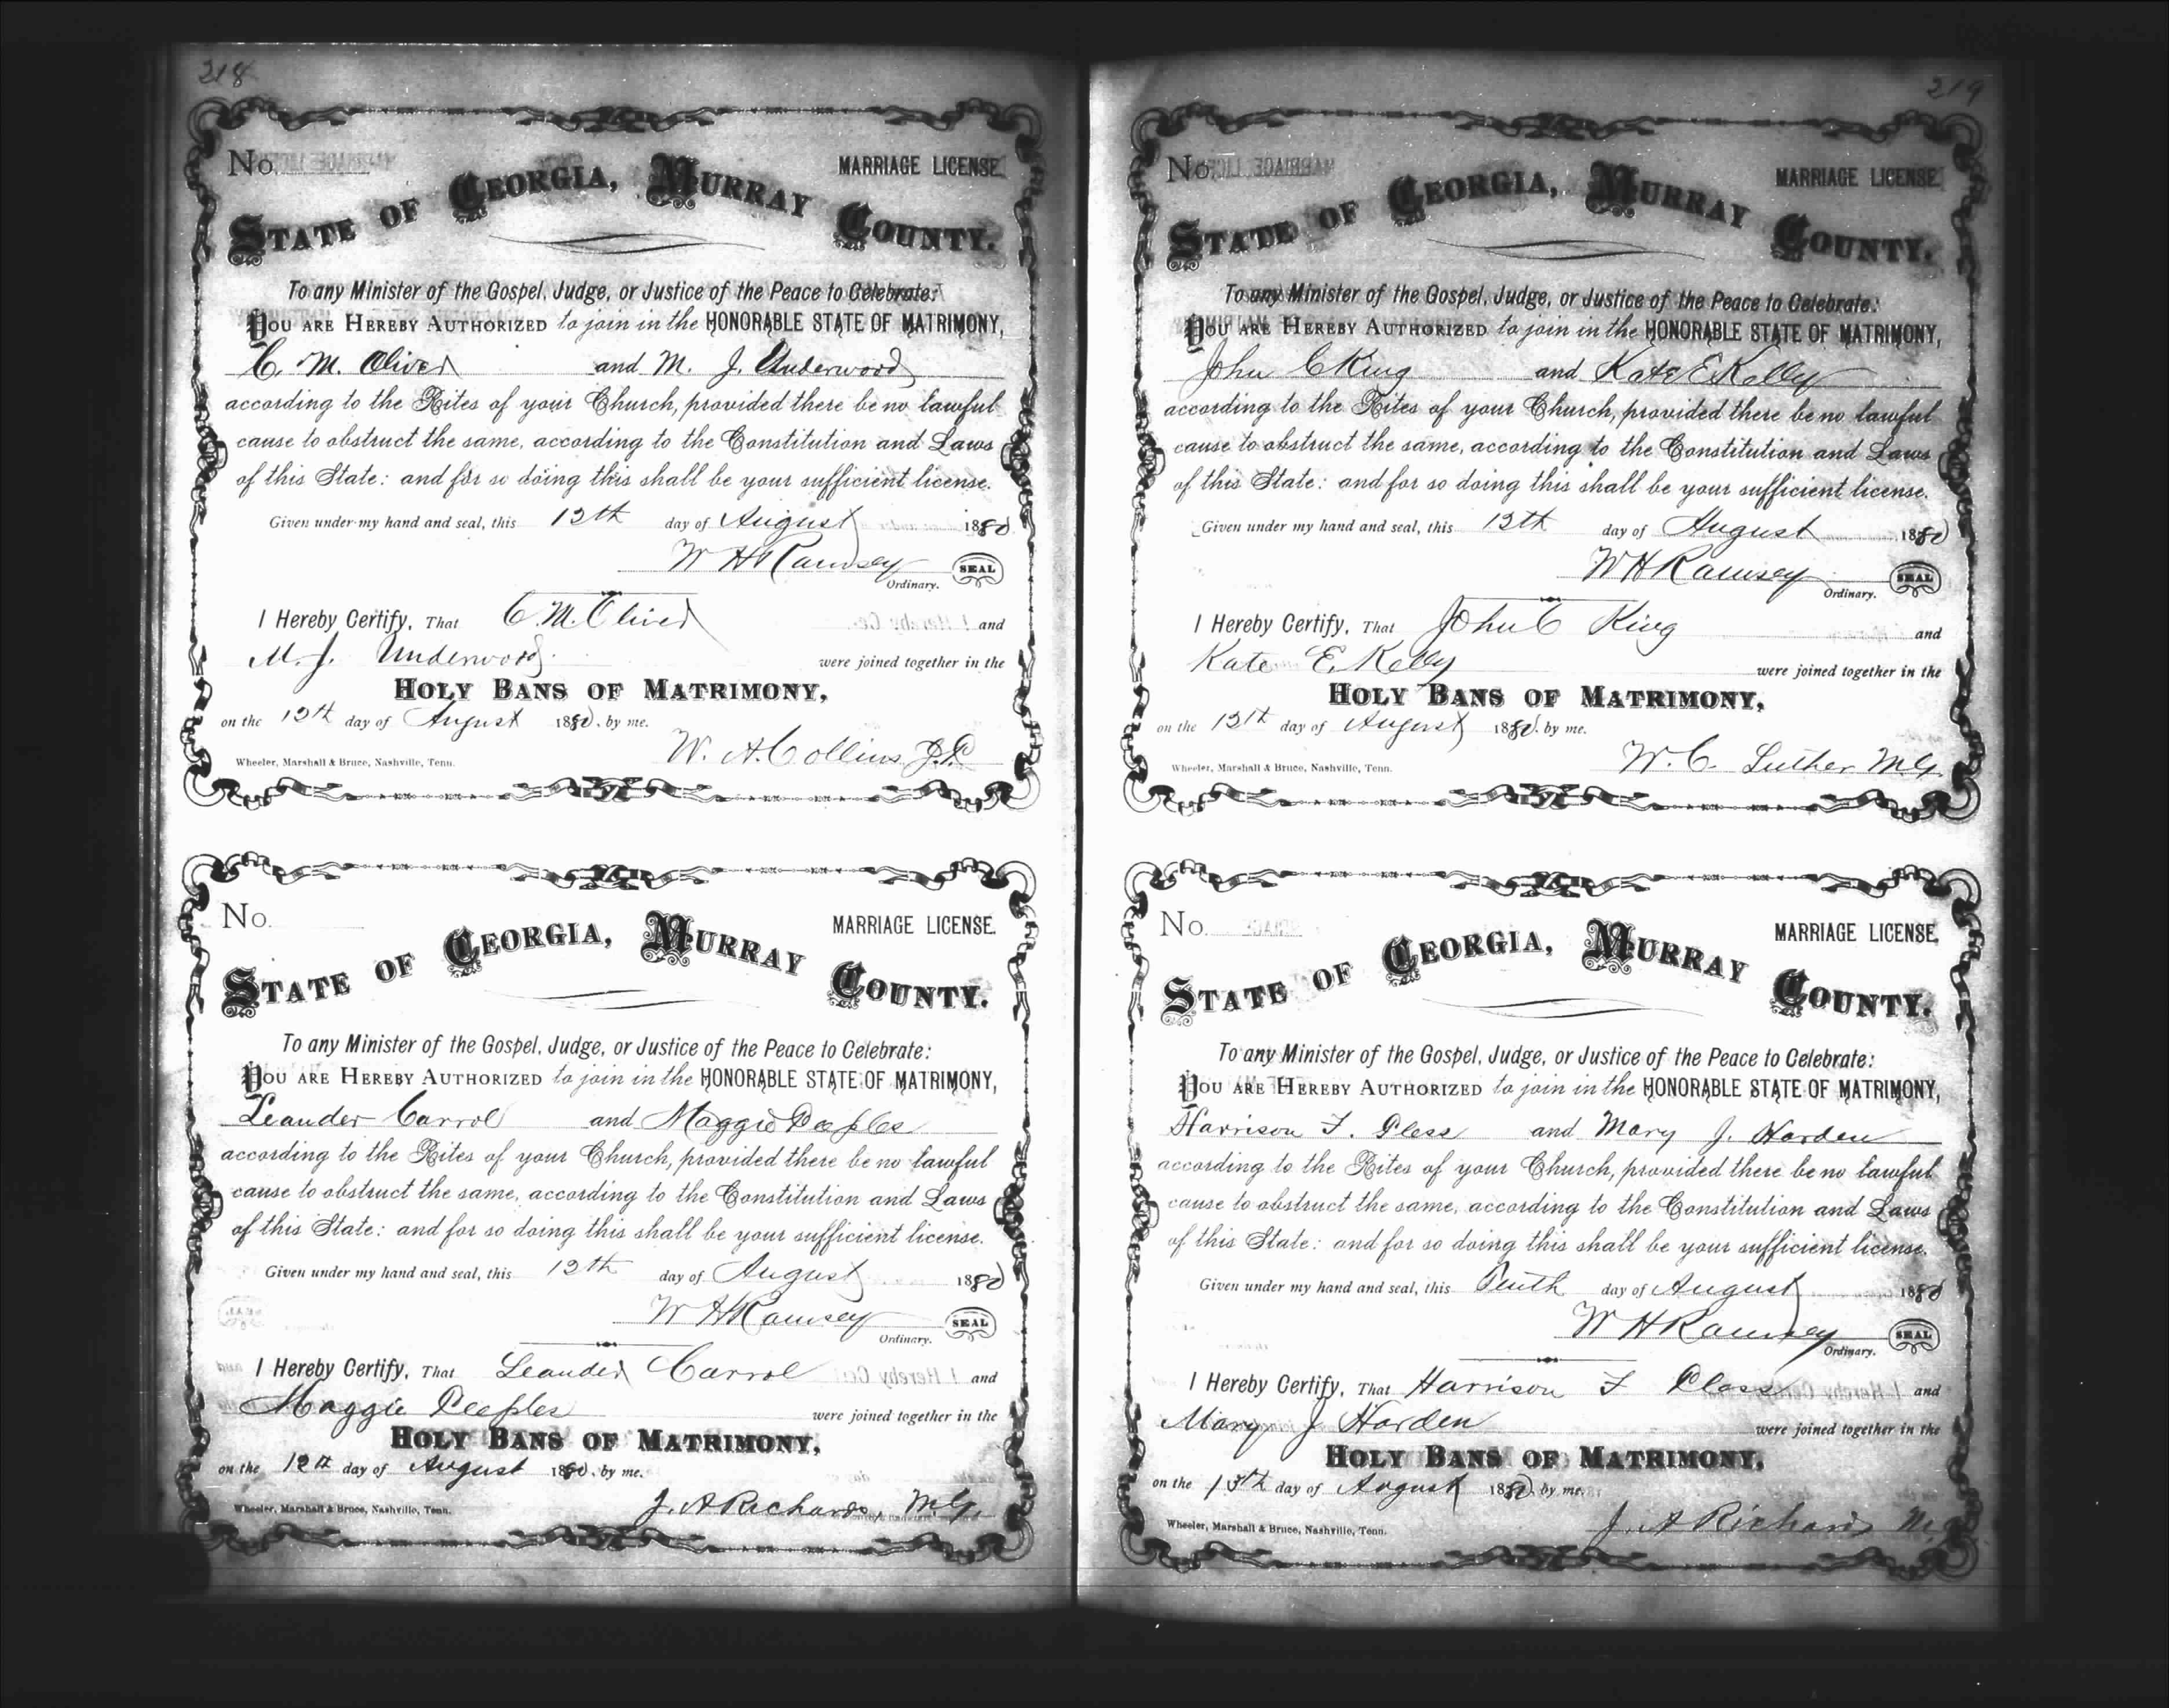 218
No. MARRIAGE LICENSE.
STATE OF GEORGIA, MURRAY COUNTY.
To any Minister of the Gospel, Judge, or Justice of the Peace to Celebrate:
YOU ARE HEREBY AUTHORIZED to join in the HONORABLE STATE OF MATRIMONY,
C. M. Oliver and M. J. Underwood
according to the Rites of your Church, provided there be no lawful
cause to obstruct the same, according to the Constitution and Laws
of this State: and for so doing this shall be your sufficient license.
Given under my hand and seal, this 12th day of August 1880
W H Ramsey SEAL
Ordinary.
I Hereby Certify, That C. M. Oliver and
M. J. Underwood were joined together in the
HOLY BANS OF MATRIMONY,
on the 12th day of August 1880, by me.
W. A. Collins J.P.
Wheeler, Marshall & Bruce, Nashville, Tenn.
No. MARRIAGE LICENSE.
STATE OF GEORGIA, MURRAY COUNTY.
To any Minister of the Gospel, Judge, or Justice of the Peace to Celebrate:
YOU ARE HEREBY AUTHORIZED to join in the HONORABLE STATE OF MATRIMONY,
Leander Carrol and Maggie Peeples
according to the Rites of your Church, provided there be no lawful
cause to obstruct the same, according to the Constitution and Laws
of this State: and for so doing this shall be your sufficient license.
Given under my hand and seal, this 12th day of August 1880
W H Ramsey SEAL
Ordinary.
I Hereby Certify, That Leander Carrol and
Maggie Peeples were joined together in the
HOLY BANS OF MATRIMONY,
on the 12th day of August 1880, by me.
J. A Richards, M.G.
Wheeler, Marshall & Bruce, Nashville, Tenn.
219
No. MARRIAGE LICENSE.
STATE OF GEORGIA, MURRAY COUNTY.
To any Minister of the Gospel, Judge, or Justice of the Peace to Celebrate:
YOU ARE HEREBY AUTHORIZED to join in the HONORABLE STATE OF MATRIMONY,
John C King and Kate E Kelly
according to the Rites of your Church, provided there be no lawful
cause to obstruct the same, according to the Constitution and Laws
of this State: and for so doing this shall be your sufficient license.
Given under my hand and seal, this 12th day of August 1880
W H Ramsey SEAL
Ordinary.
I Hereby Certify, That John C King and
Kate E. Kelly were joined together in the
HOLY BANS OF MATRIMONY,
on the 12th day of August 1880, by me.
W. C. Luther M.G.
Wheeler, Marshall & Bruce, Nashville, Tenn.
No. MARRIAGE LICENSE.
STATE OF GEORGIA, MURRAY COUNTY.
To any Minister of the Gospel, Judge, or Justice of the Peace to Celebrate:
YOU ARE HEREBY AUTHORIZED to join in the HONORABLE STATE OF MATRIMONY,
Harrison F. Pless and Mary J. Harden
according to the Rites of your Church, provided there be no lawful
cause to obstruct the same, according to the Constitution and Laws
of this State: and for so doing this shall be your sufficient license.
Given under my hand and seal, this Tenth day of August 1880
W H Ramsey SEAL
Ordinary.
I Hereby Certify, That Harrison F Pless and
Mary J Harden were joined together in the
HOLY BANS OF MATRIMONY,
on the 15th day of August 1880, by me.
J. A Richards M.
Wheeler, Marshall & Bruce, Nashville, Tenn.